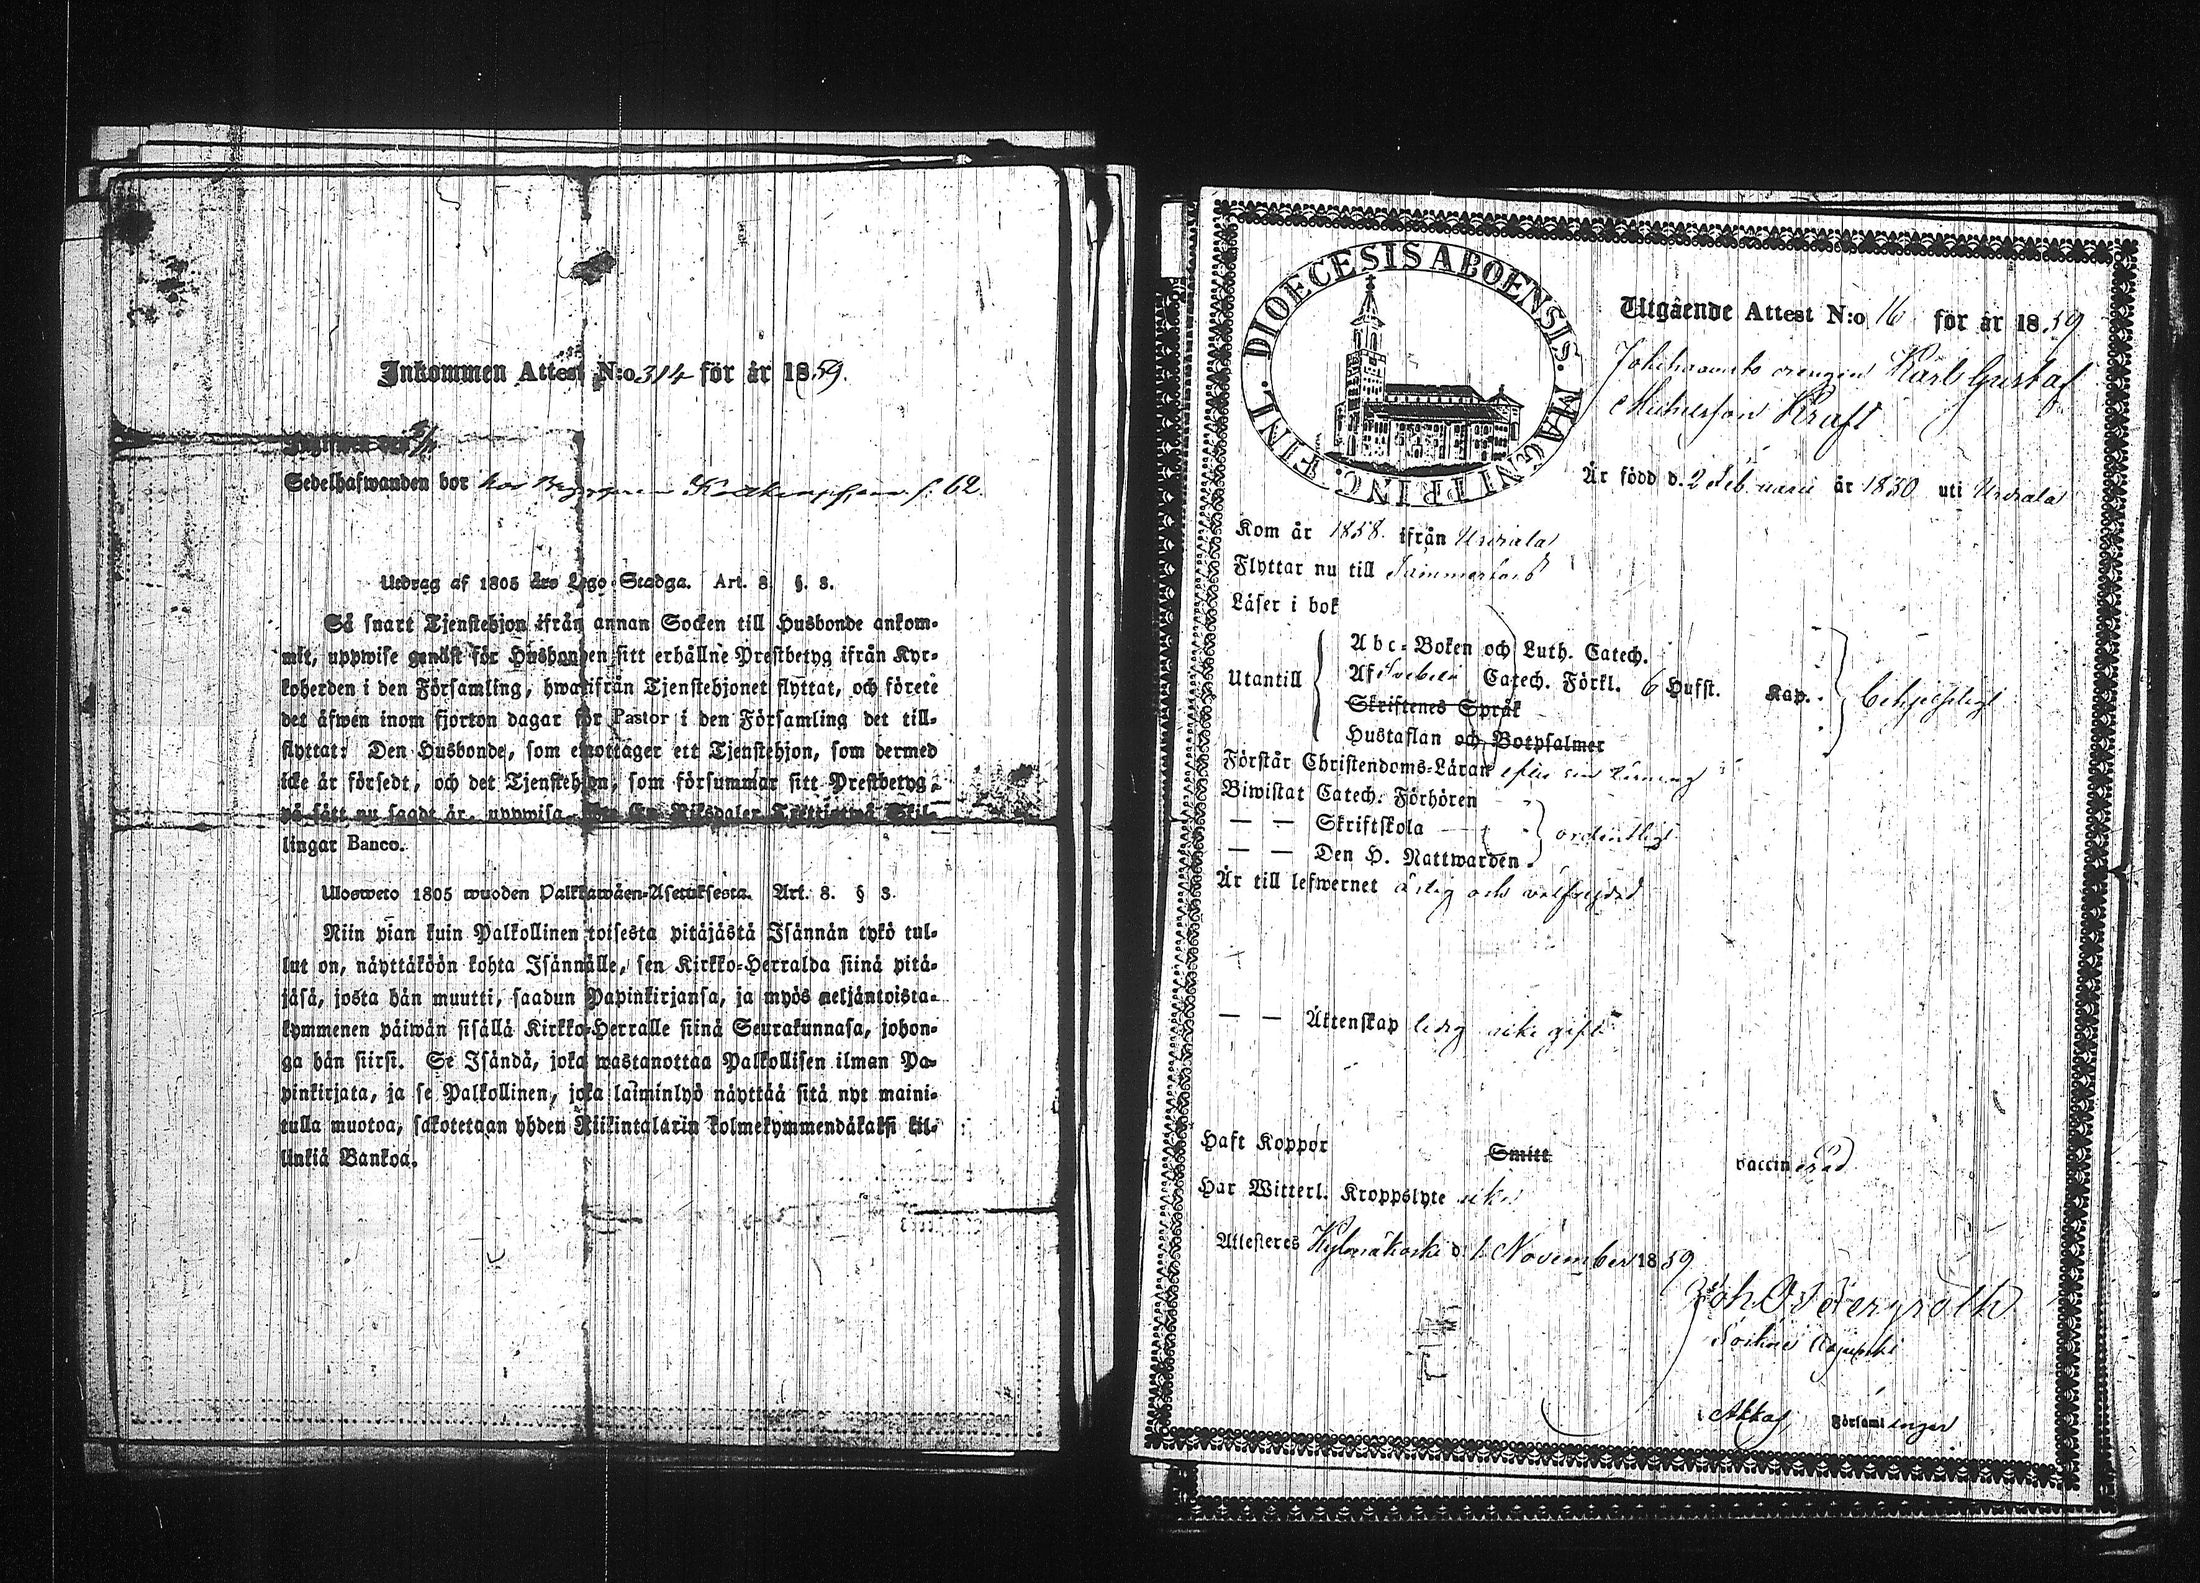 Inkommen Attest N:o 314 för år 1859.
Sedelhafwanden bor hos f: 62.
Utdrag af 1805 års Lego-Stadga. Art. 8. §. 3.
Så snart Tjenstehjon ifrån annan Socken till Husbonde ankom-
mit, uppwise genast för Husbonden sitt erhållne Prestbetyg ifrån Kyr-
koherden i den Församling, hwarifrån Tjenstehjonet flyttat, och förete
det äfwen inom fjorton dagar för Pastor i den Församling det till-
flyttat: Den Husbonde, som emottager ett Tjenstehjon, som dermed
icke är försedt, och det Tjenstehjon, som försummar sitt Prestbetyg,
på sätt nu sagdt är, uppwisa, Riksdaler Trettiotwå Skil-
lingar Banco.
Ulosweto 1805 wuoden Palkkawäen-Asetuksesta. Art. 8. § 3.
Niin pian kuin Palkollinen toisesta pitäjästä Isännän tykö tul-
lut on, näyttäköön kohta Isännälle, sen Kirkko-Herralda siinä pitä-
jäsä, josta hän muutti, saadun Papinkirjansa, ja myös neljäntoista-
kymmenen päiwän sisällä Kirkko-Herralle siinä Seurakunnasa, johon-
ga hän siirsi. Se Isändä, joka wastanottaa Palkollisen ilman Pa-
pinkirjata, ja se Palkollinen, joka laiminlyö näyttää sitä nyt maini-
tulla muotoa, sakotetaan yhden Riikintalarin kolmekymmendäkaksi kil-
linkiä Bankoa.
DIOECESIS ABOENSIS. MAGNI PRINC. FINL.
Utgående Attest N:o 16 för år 1859
drengen Karl Gustaf
Kraft
Är född d. 2 Februarii år 1830 uti Urdiala
Kom år 1858 ifrån Urdiala
Flyttar nu till Tammerfors
Läser i bok
Utantill
Abc-Boken och Luth. Catech.
Af Svebelii Catech. Förkl. 6 Hufst. Kap. behjelpligt
Skriftenes Språk
Hustaflan och Botpsalmer
Förstår Christendoms-Läran efter sin
Biwistat Catech. Förhören
— — Skriftskola ordentligt
— — Den H. Nattwarden
Är till lefwernet ärlig och välfrejdad
— — Äktenskap ledig icke gift
Haft Koppor Smitt vaccinerad
Har Witterl. Kroppslyte icke
Attesteras Kylmäkoski d. 1 November 1859
Joh
Sockne
Akkas Församlingar